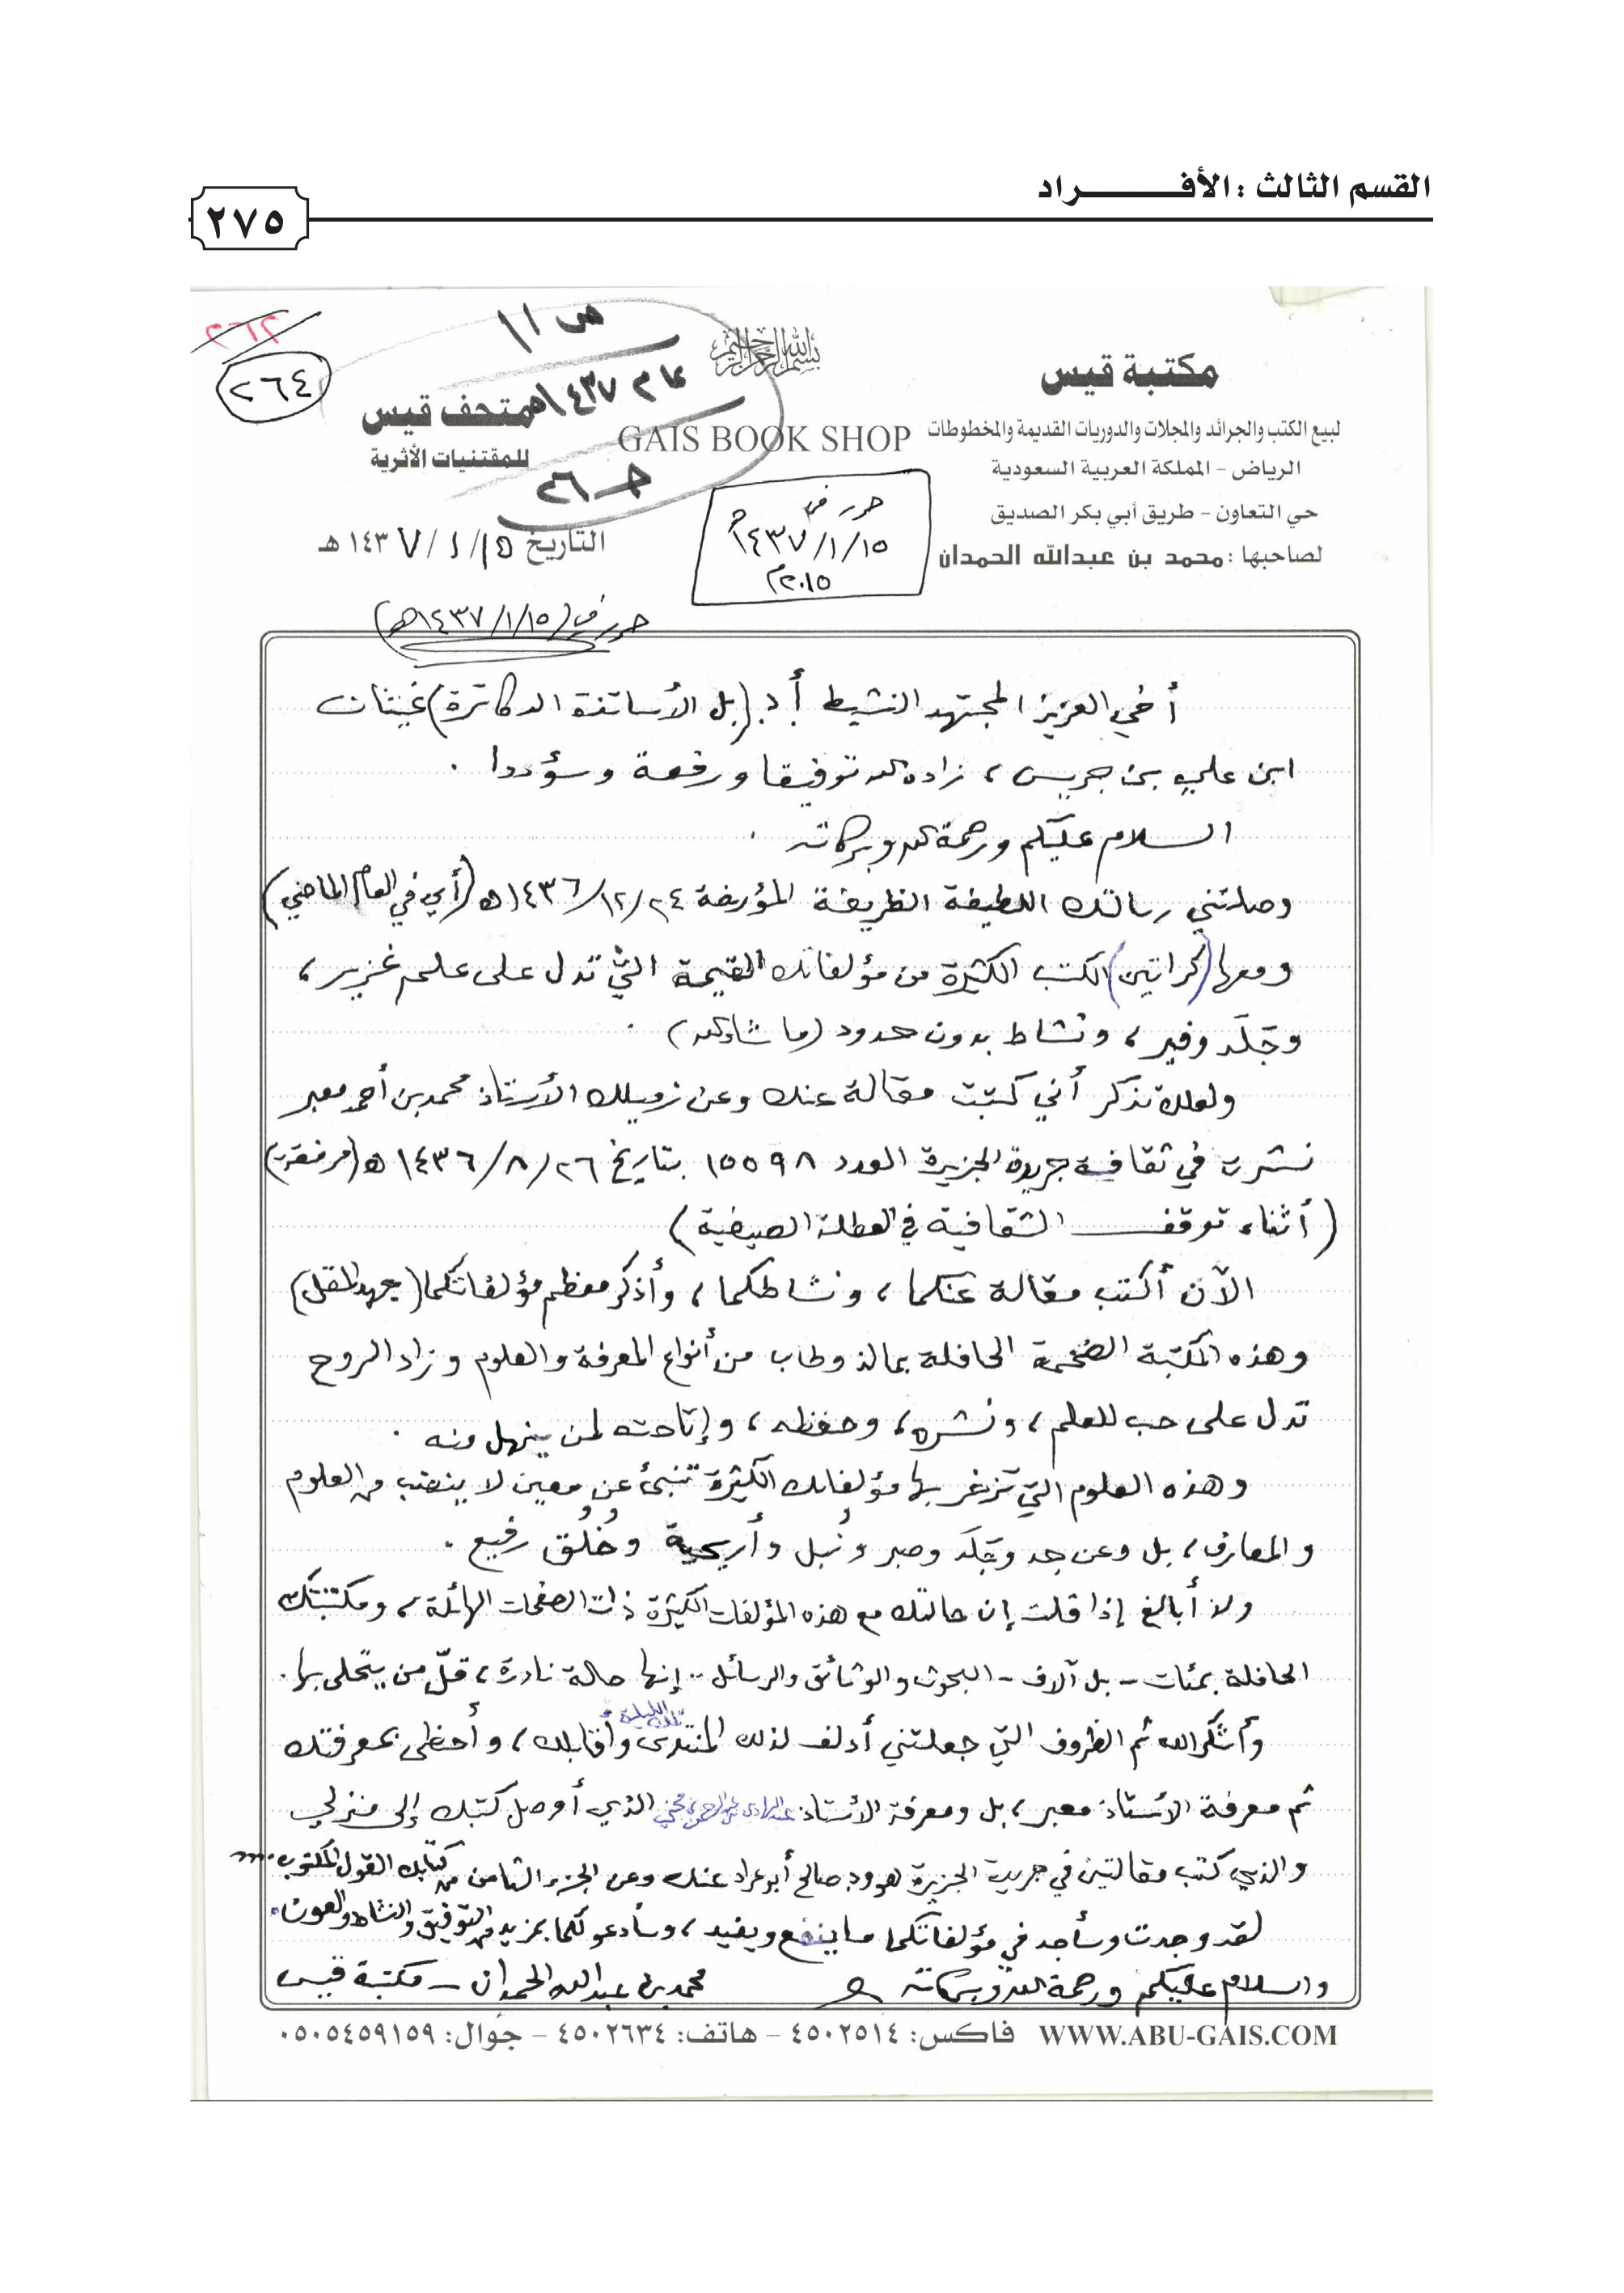 القسم الثالث : الأفـــــــــراد
٢٧٥
٢٦٢
٢٦٤
ص ١١
عام ١٤٣٧هـ
جـ ٢٦
بسم الله الرحمن الرحيم
مكتبة قيس
لبيع الكتب والجرائد والمجلات والدوريات القديمة والمخطوطات
الرياض - المملكة العربية السعودية
حي التعاون - طريق أبي بكر الصديق
لصاحبها : محمد بن عبدالله الحمدان
GAIS BOOK SHOP
متحف قيس
للمقتنيات الأثرية
حرر في
١٤٣٧/١/١٥هـ
٢٠١٥م
التاريخ ١٥/ ١/ ١٤٣٧ هـ
حرر في (١٤٣٧/١/١٥هـ)
أخي العزيز المجتهد النشيط أ.د. (بل الأساتذة الدكاترة) غيثان
ابن علي بن جريس، زاده الله توفيقا ورفعة وسؤددا .
السلام عليكم ورحمة الله وبركاته .
وصلتني رسالتك اللطيفة الظريفة المؤرخة ١٤٣٦/١٢/٢٤هـ (أي في العام الماضي)
ومعها (كراتين) الكتب الكثيرة من مؤلفاتك القيمة التي تدل على علم غزير،
وجَلَد وفير، ونشاط بدون حدود (ما شاء الله) .
ولعلك تذكر أني كتبت مقالة عنك وعن زميلك الأستاذ محمد بن أحمد معبر
نشرت في ثقافية جريدة الجزيرة العدد ١٥٥٩٨ بتاريخ ١٤٣٦/٨/٢٦هـ (مرفقة)
(أثناء توقف الثقافية في العطلة الصيفية)
الآن أكتب مقالة عنكما، ونشاطكما، وأذكر معظم مؤلفاتكما (جهد المقل)
وهذه المكتبة الضخمة الحافلة بما لذ وطاب من أنواع المعرفة والعلوم وزاد الروح
تدل على حب للعلم، ونشره، وحفظه، وإتاحته لمن ينهل منه .
وهذه العلوم التي تزخر بها مؤلفاتك الكثيرة تنبئ عن معين لا ينضب من العلوم
والمعارف، بل وعن جد وجَلَد وصبر ونُبل وأريحية وخُلُق رفيع .
ولا أبالغ إذا قلت إن حالتك مع هذه المؤلفات الكثيرة ذات الصفحات الهائلة، ومكتبتك
الحافلة بمئات - بل آلاف - البحوث والوثائق والرسائل .. إنها حالة نادرة، قلّ من يتحلى بها .
وأشكر الله ثم الظروف التي جعلتني أدلف لذلك المنتدى تلك الليلة وأقابلك، وأحظى بمعرفتك
ثم معرفة الأستاذ معبر، بل ومعرفة الأستاذ عبدالهادي بن عبدالرحمن الذي أوصل كتبك إلى منزلي
والذي كتب مقالتين في جريدة الجزيرة هو ود. صالح أبو عراد عنك وعن الجزء الثامن من كتابك القول المكتوب ...
لقد وجدت وسأجد في مؤلفاتكما ما ينفع ويفيد، وسأدعو لكما بمزيد من التوفيق والنشاط والعون .
والسلام عليكم ورحمة الله وبركاته
محمد بن عبدالله الحمدان - مكتبة قيس
WWW.ABU-GAIS.COM فاكس: ٤٥٠٢٥١٤ - هاتف: ٤٥٠٢٦٣٤ - جوال: ٠٥٠٥٤٥٩١٥٩